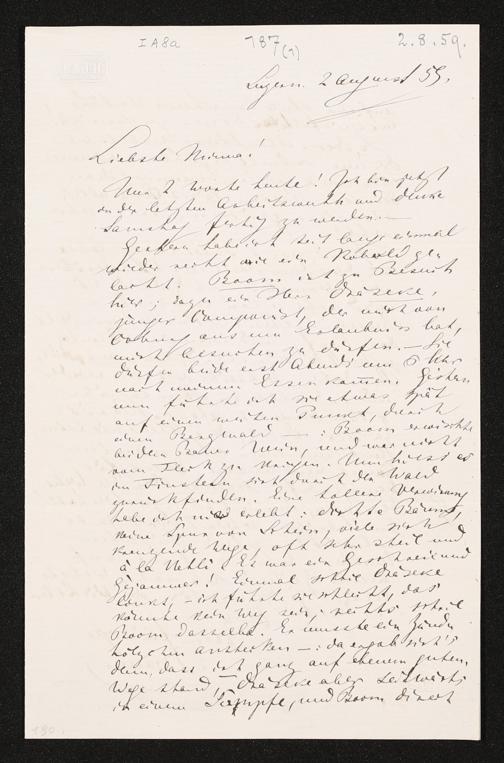 I A 8a 187 (1) 2.8.59.
Luzern. 2 August 59.
Liebste Minna!
Nur 2 Worte heute! Ich bin jetzt
an der letzten Arbeitswoche und denke
Samstag fertig zu werden.—
Gestern habe ich seit lange einmal
wieder recht wie ein Kobold ge-
lacht. Boom ist zu Besuch
hier; dazu ein Herr Dräseke,
junger Componist, der mich von
Coburg aus um Erlaubniss bat,
mich besuchen zu dürfen.— Sie
dürfen beide erst Abends um 6 Uhr
nach meinem Essen kommen. Gestern
nun führte ich sie etwas spät
auf einen weiten Punkt, durch
einen Bergwald — : Boom erwischte
bei dem Bauer Wein, und war nicht
vom Fleck zu bringen. Nun hiess es
im Finstern sich durch den Wald
zurückfinden. Eine tollere Verwirrung
habe ich nie erlebt: dichte Bäume,
keine Spur von Schein, viele sich
kreuzende Wege, oft sehr steil und
à la Uetli. Es war ein Geschrei und
Gejammer! Einmal schrie Dräseke
links, – ich führte sie schlecht, das
könnte kein Weg sein; rechts schrie
Boom dasselbe. Er musste ein Zünd-
hölzchen anstecken —: da ergab sich's
denn, dass ich ganz auf einem guten
Wege stand, Dräseke aber seitwärts
in einem Sumpfe, und Boom direct
190.